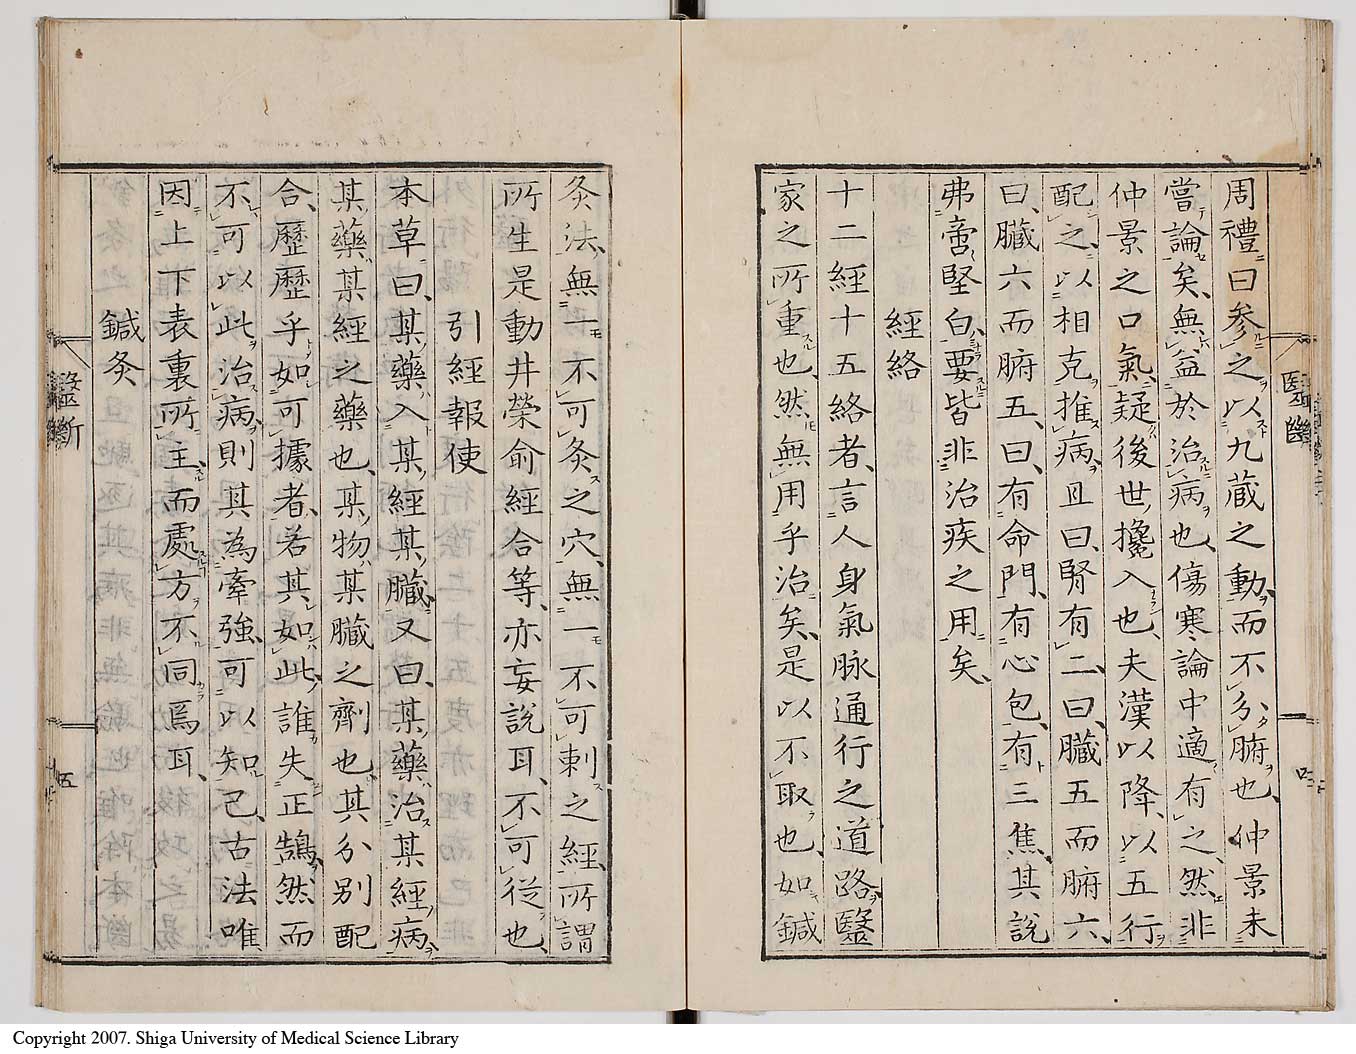 周禮曰參之以九蔵之動而不分腑也仲景未
嘗論矣無益於治病也傷寒論中適有之然非
仲景之口氣疑後世攙入也夫漢以降以五行
配之以相克推病且曰腎有二曰臓五而腑六
曰臓六而腑五曰有命門有心包有三焦其說
弗啻堅白要皆非治疾之用矣
經絡
十二經十五絡者言人身氣脉通行之道路醫
家之所重也然無用乎治矣是以不取也如鍼
灸法無一不可灸之穴無一不可刺之經所謂
所生是動井榮俞經合等亦妄說耳不可從也
引經報使
本草曰某藥入某經某臓又曰某藥治某經病
某藥某經之藥也某物某臓之劑也其分別配
合歷歷乎如可據者若其如此誰失正鵠然而
不可以此治病則其為牽強可以知已古法唯
因上下表裏所主而處方不同焉耳
鍼灸
醫斷
五
Copyright 2007. Shiga University of Medical Science Library